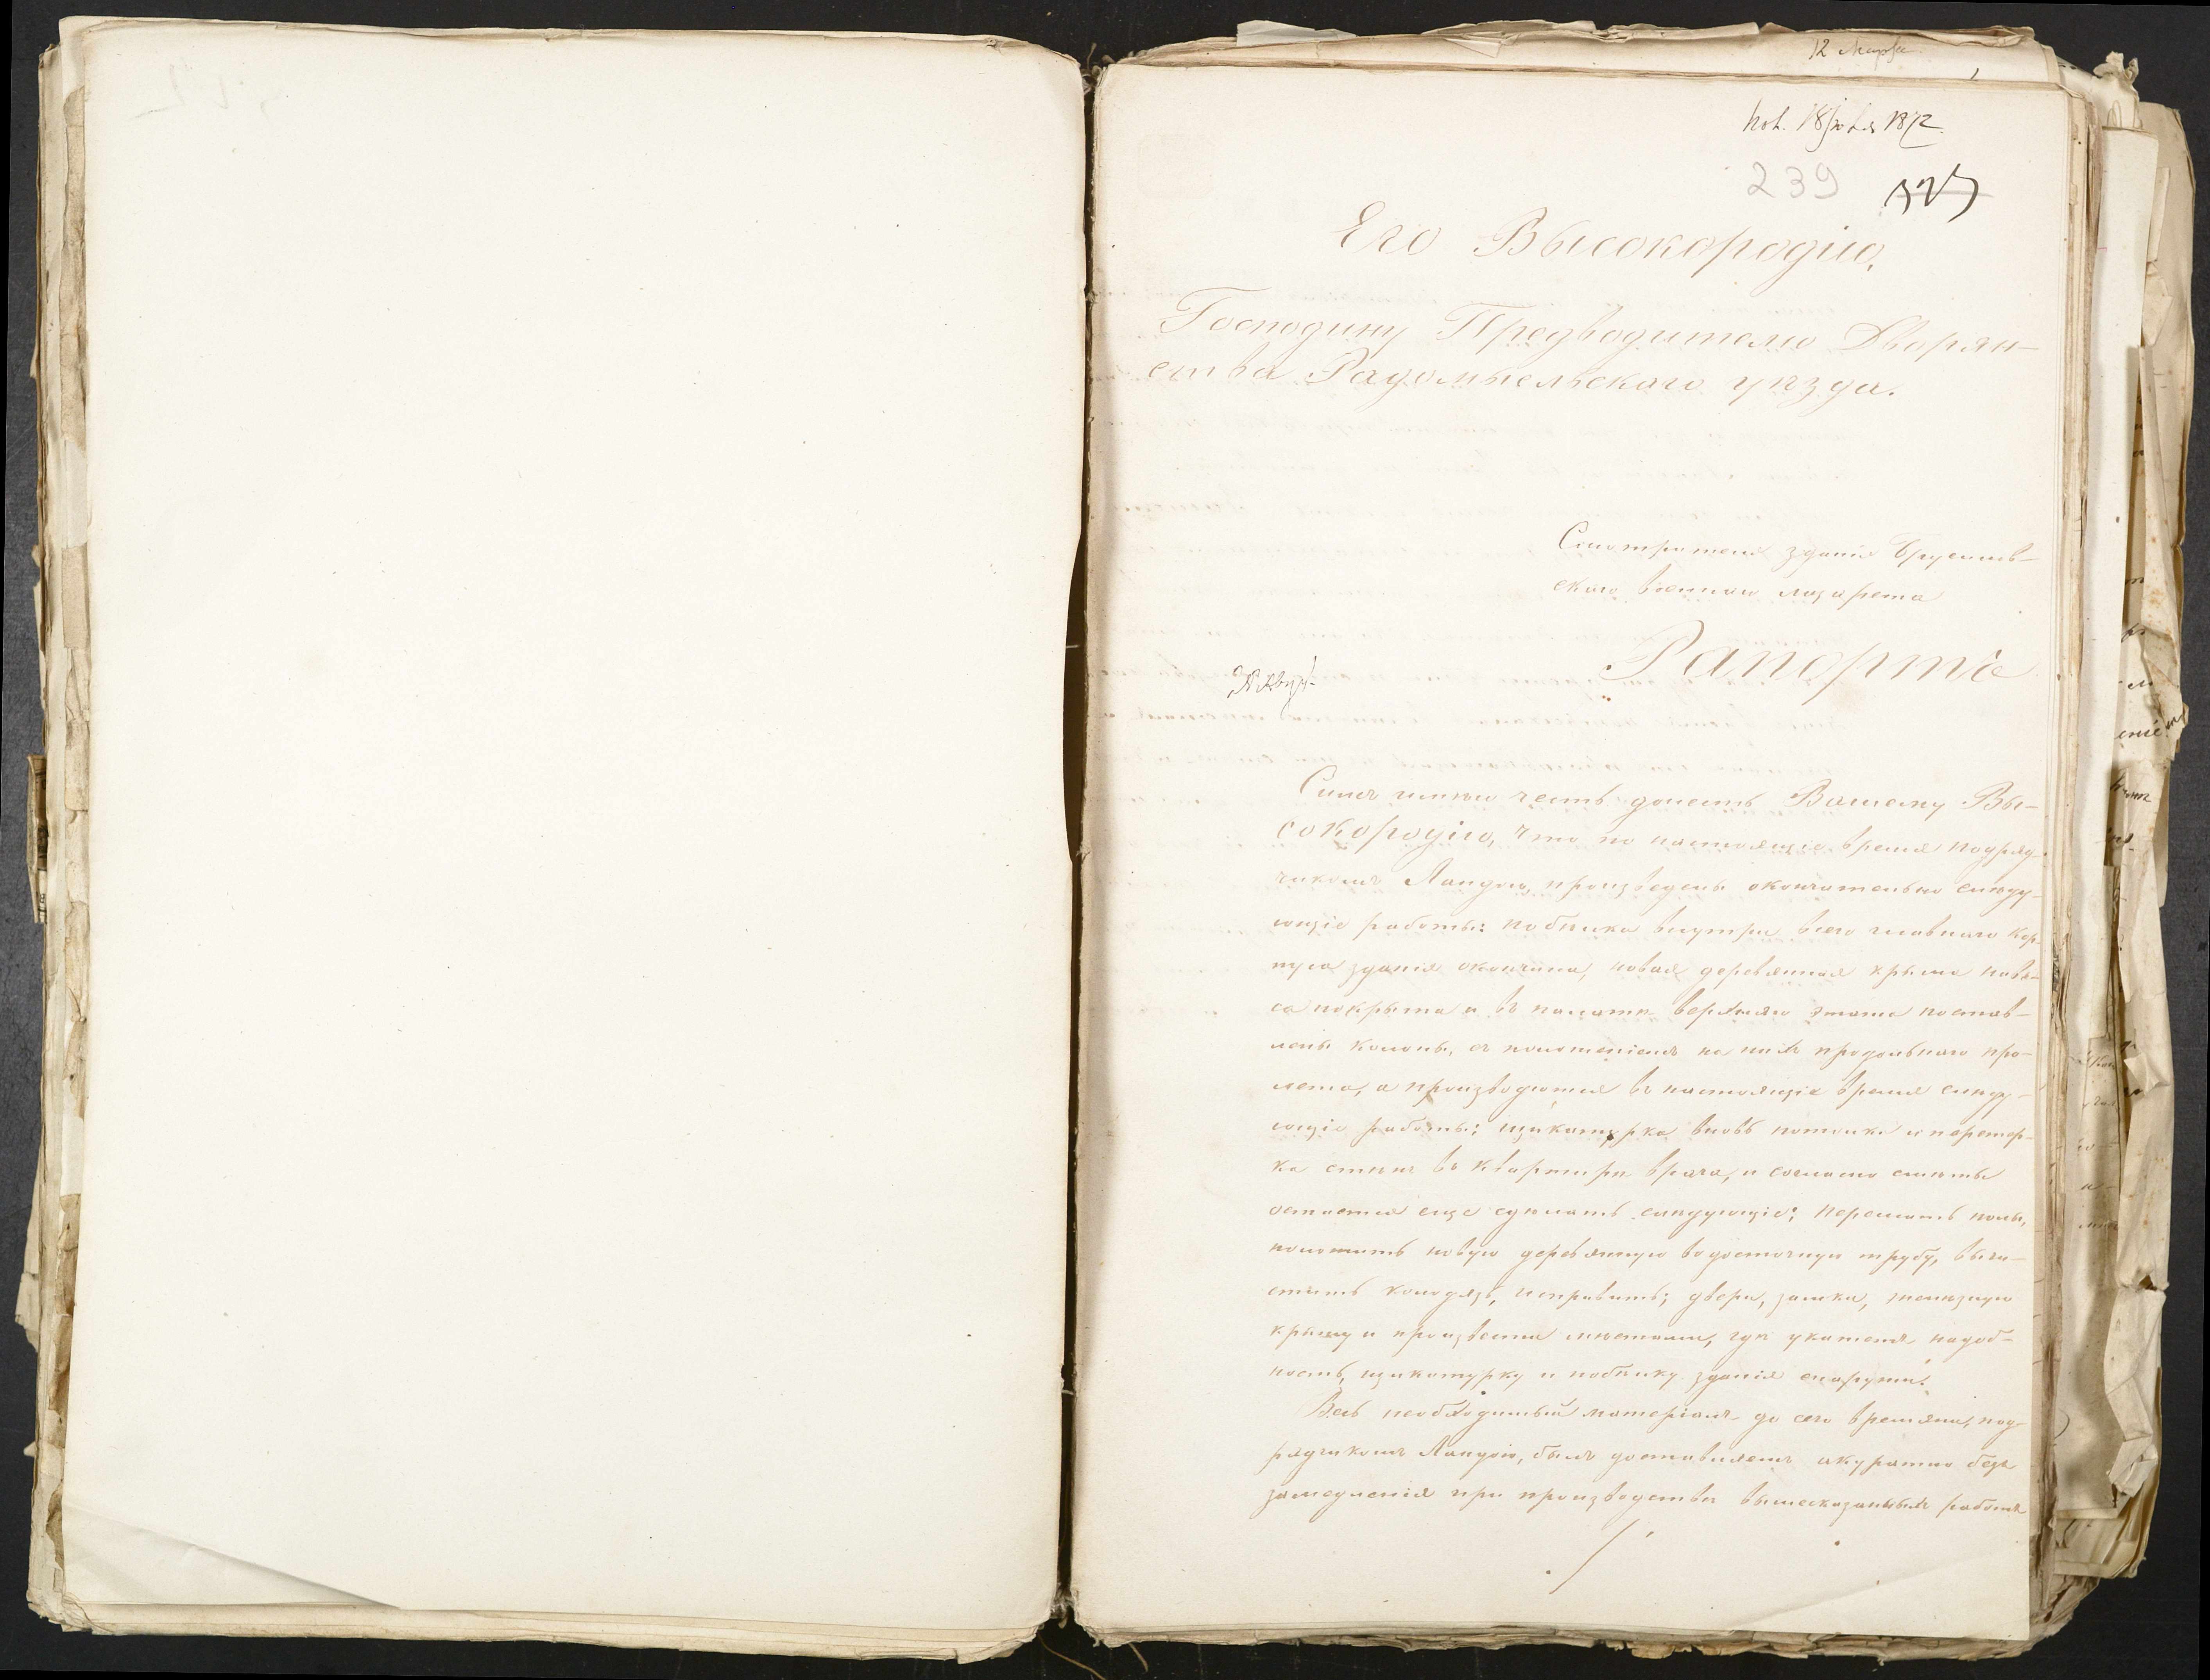 12 Марта
1872
239
Его Высокородію,
Господину Предводителю Дворян-
ства Радомысльскаго уѣзда.
Смотрителя зданія Брусилов-
скаго военнаго лазарета
Рапортъ
Симъ имѣю честь донесть Вашему Вы-
сокородію, что по настоящіе время подряд-
чикомъ Ландою произведены окончательно слѣду-
ющіе работы: побѣлка внутри всего главнаго кор-
пуса зданія окончина, новая деревянная крыша навѣ-
са покрыта и въ палатѣ верхняго этажа постав-
лены колоны, съ положеніемъ на нихъ продольнаго про-
лета, а производятся въ настоящіе время слѣду-
ющіе работы: щикатурка вновь потолка и перетир-
ка стѣнъ въ квартирѣ врача, и согласно смѣты
остается еще сдѣлать слѣдующіе: перелать полы,
положить новую деревянную водосточную трубу, вычи-
стить колодязь, исправить; двери, замки, желѣзную
крышу и произвести мѣстами, гдѣ укажетъ надоб-
ность, щикатурку и побѣлку зданія снаружи.
Весь необходимый матеріалъ до сего времяни, под-
рядчикомъ Ландою, былъ доставляемъ акуратно безъ
замедленія при производствѣ вышесказанныхъ работъ